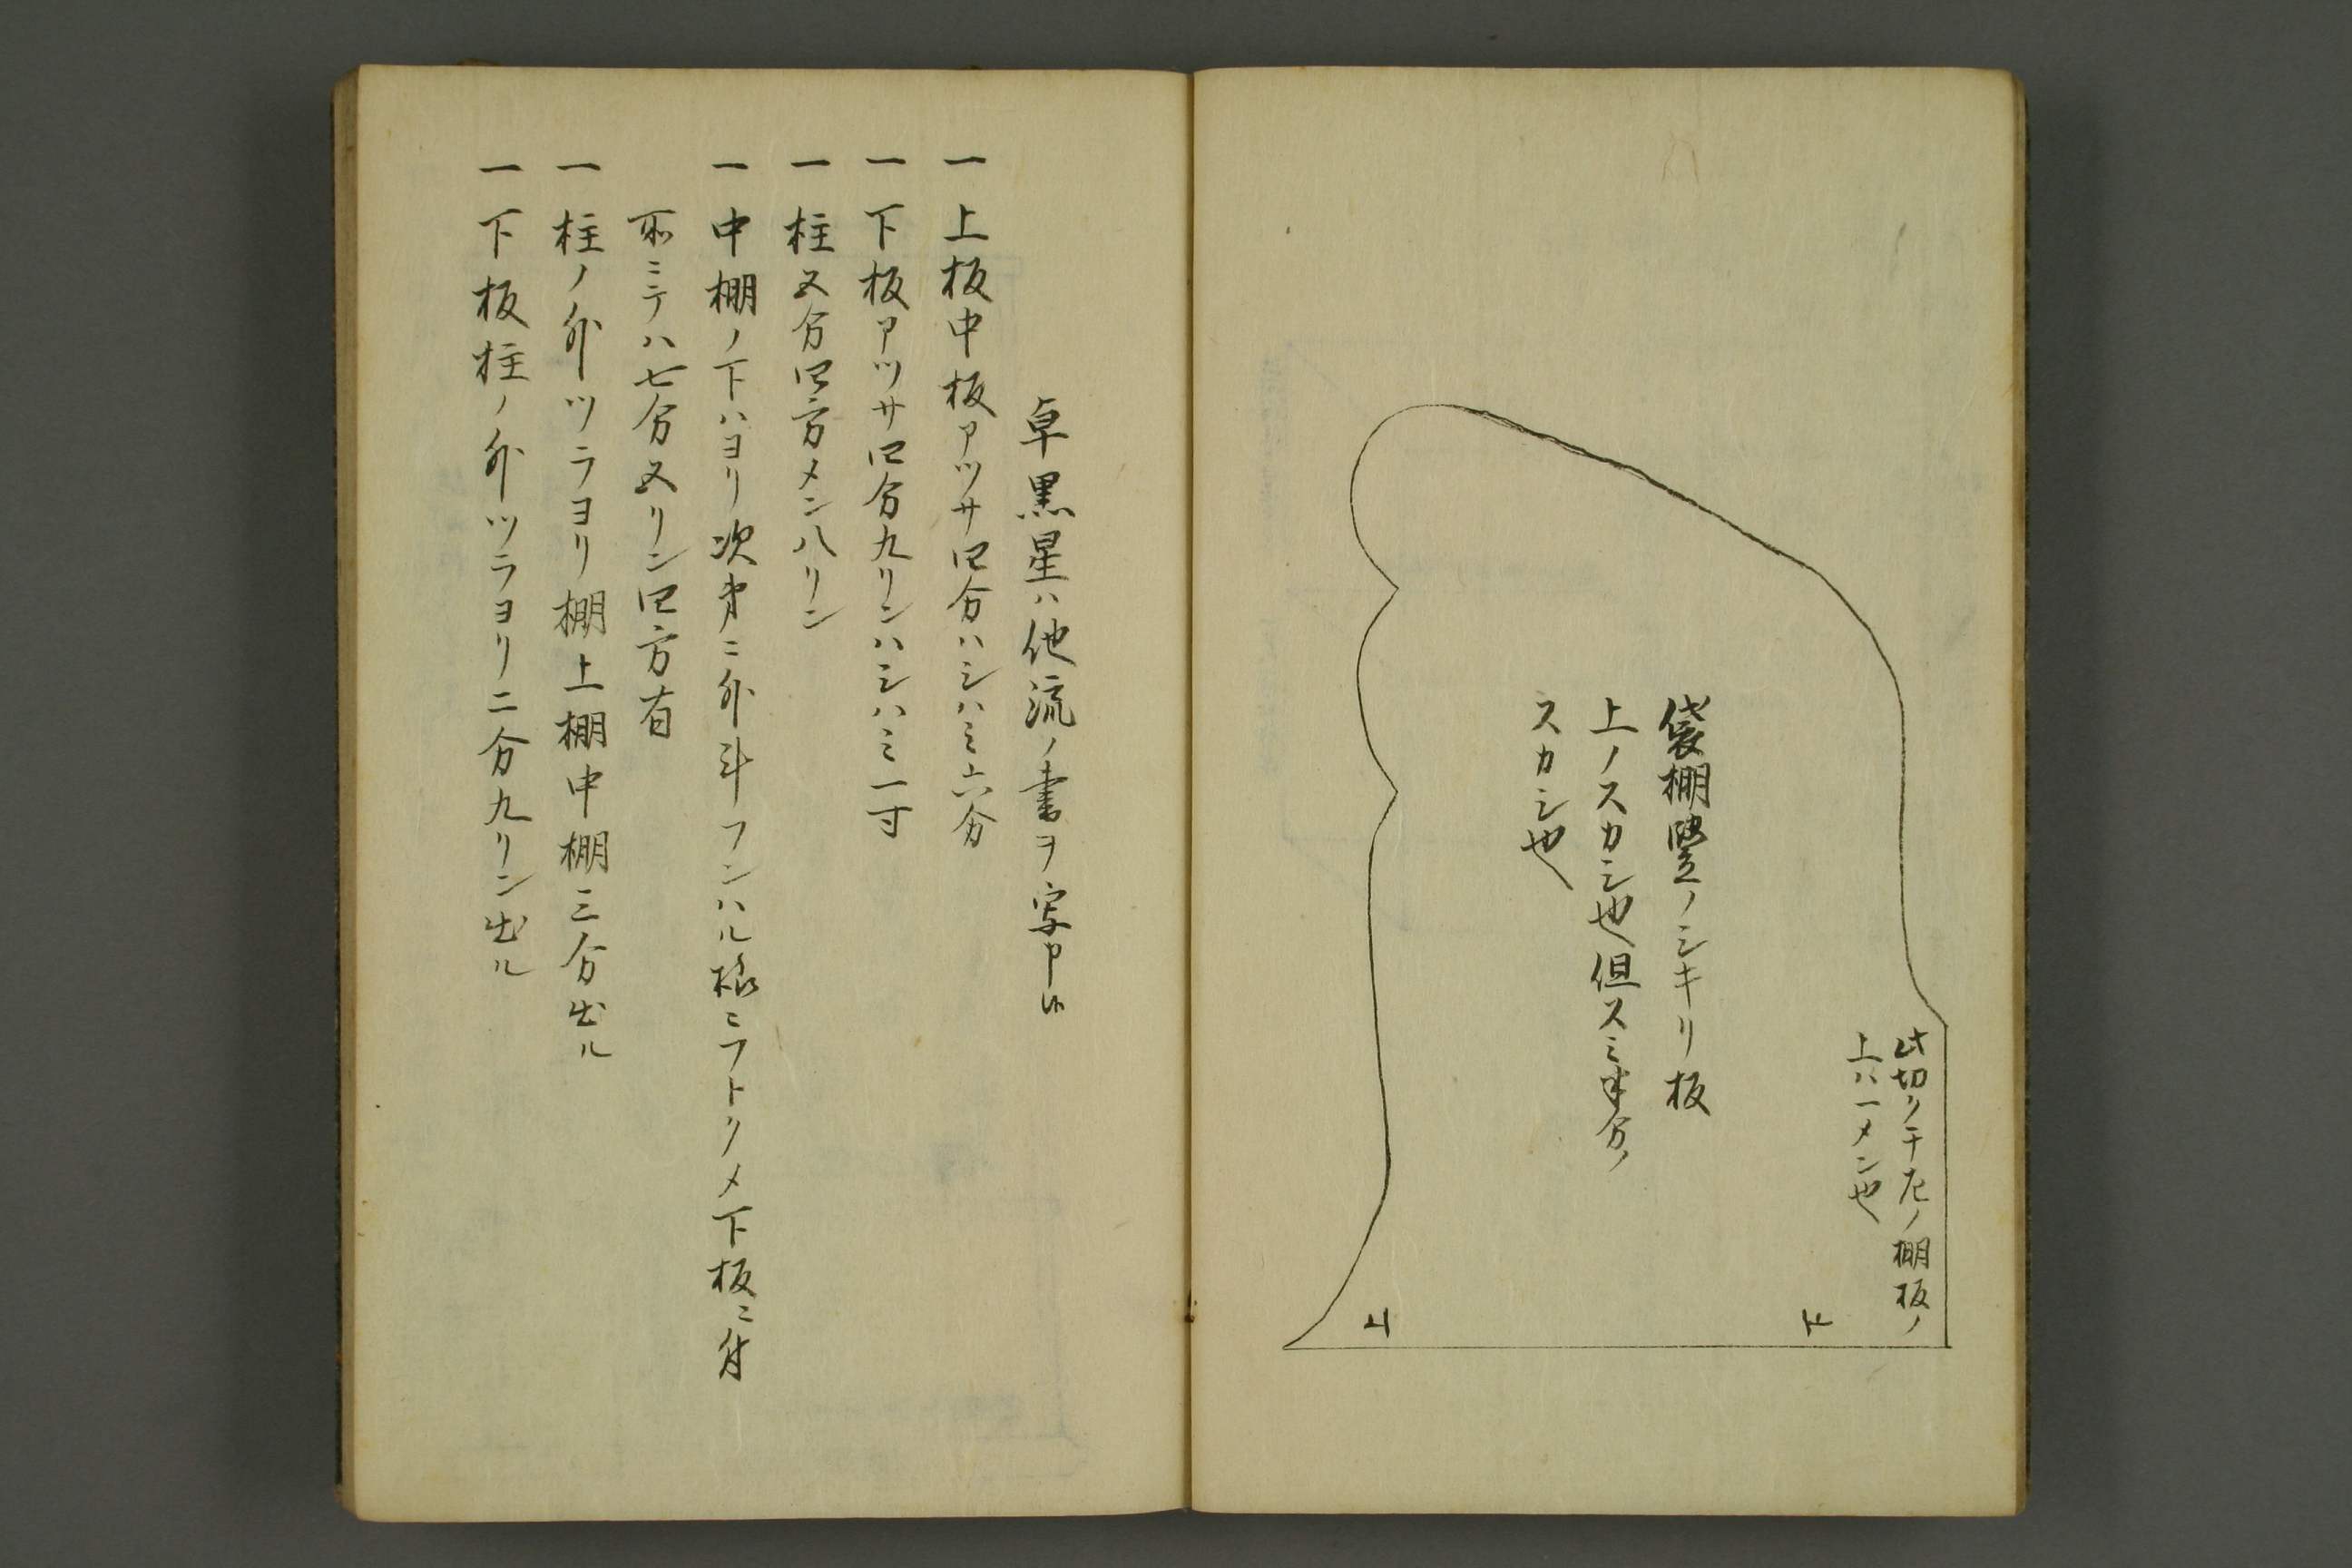 此切リテ左ノ棚板ノ
上ハ一メン也
袋棚竪ノシキリ板
上ノスカシ也但スミ半分ノ
スカシ也
下
上
卓黒星ハ他流ノ書ヲ写申候
一上板中板アツサ四分ハシハミ六分
一下板アツサ四分九リンハシハミ一寸
一柱五分四方メン八リン
一中棚ノ下ハヨリ次第ニ外斗フンハル様ニフトクメ下板ニ付
所ニテハ七分五リン四方有
一柱ノ外ツラヨリ棚上棚中棚三分出ル
一下板柱ノ外ツラヨリ二分九リン出ル